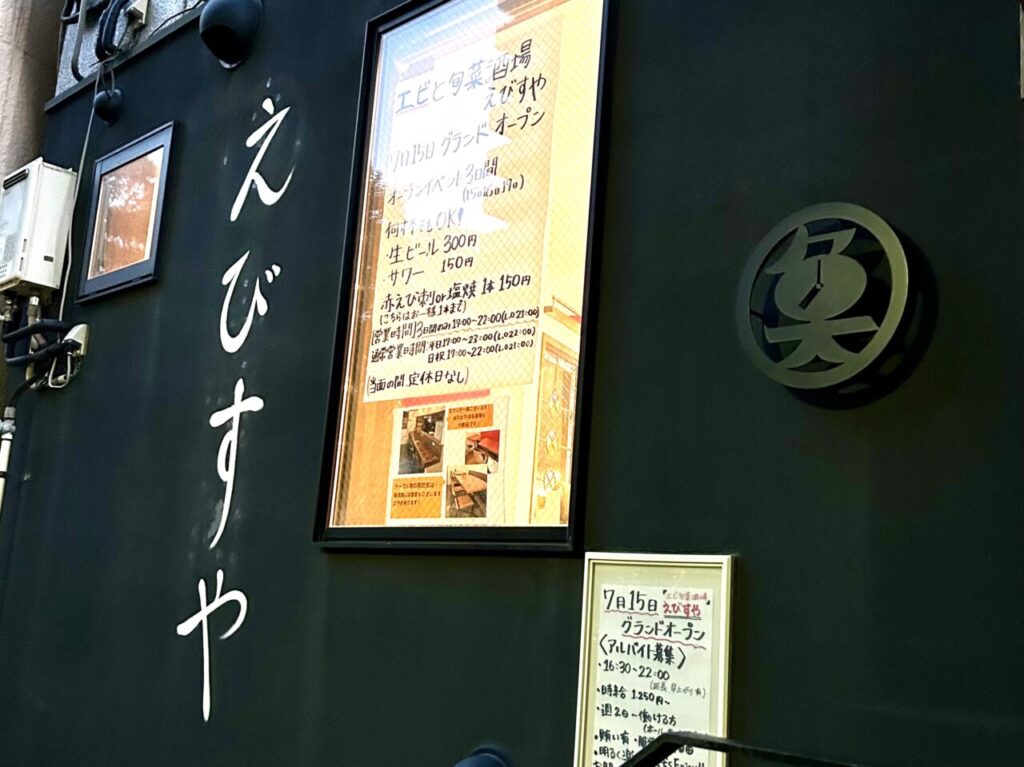 えびすや
エビと旬菜酒場
えびすや
7月15日 グランドオープン
オープンイベント3日間
(15日16日17日)
何杯でもOK!
・生ビール 300円
・サワー 150円
・赤えび刺or塩焼 1本 150円
(こちらはお一様1本まで)
[営業時間]3日間のみ17:00~22:00(L.O21:00)
通常営業時間:平日17:00~23:00(L.O22:00)
日祝17:00~22:00(L.O21:00)
(当面の間、定休日なし)
7月15日 "エビと旬菜酒場
えびすや"
グランドオープン
〈アルバイト募集〉
・16:30~22:00
(延長、早上がり有)
・時給 1.250円~
・週2日~働ける方
(ホール
・賄い有・
・明るく
Enjoy!!